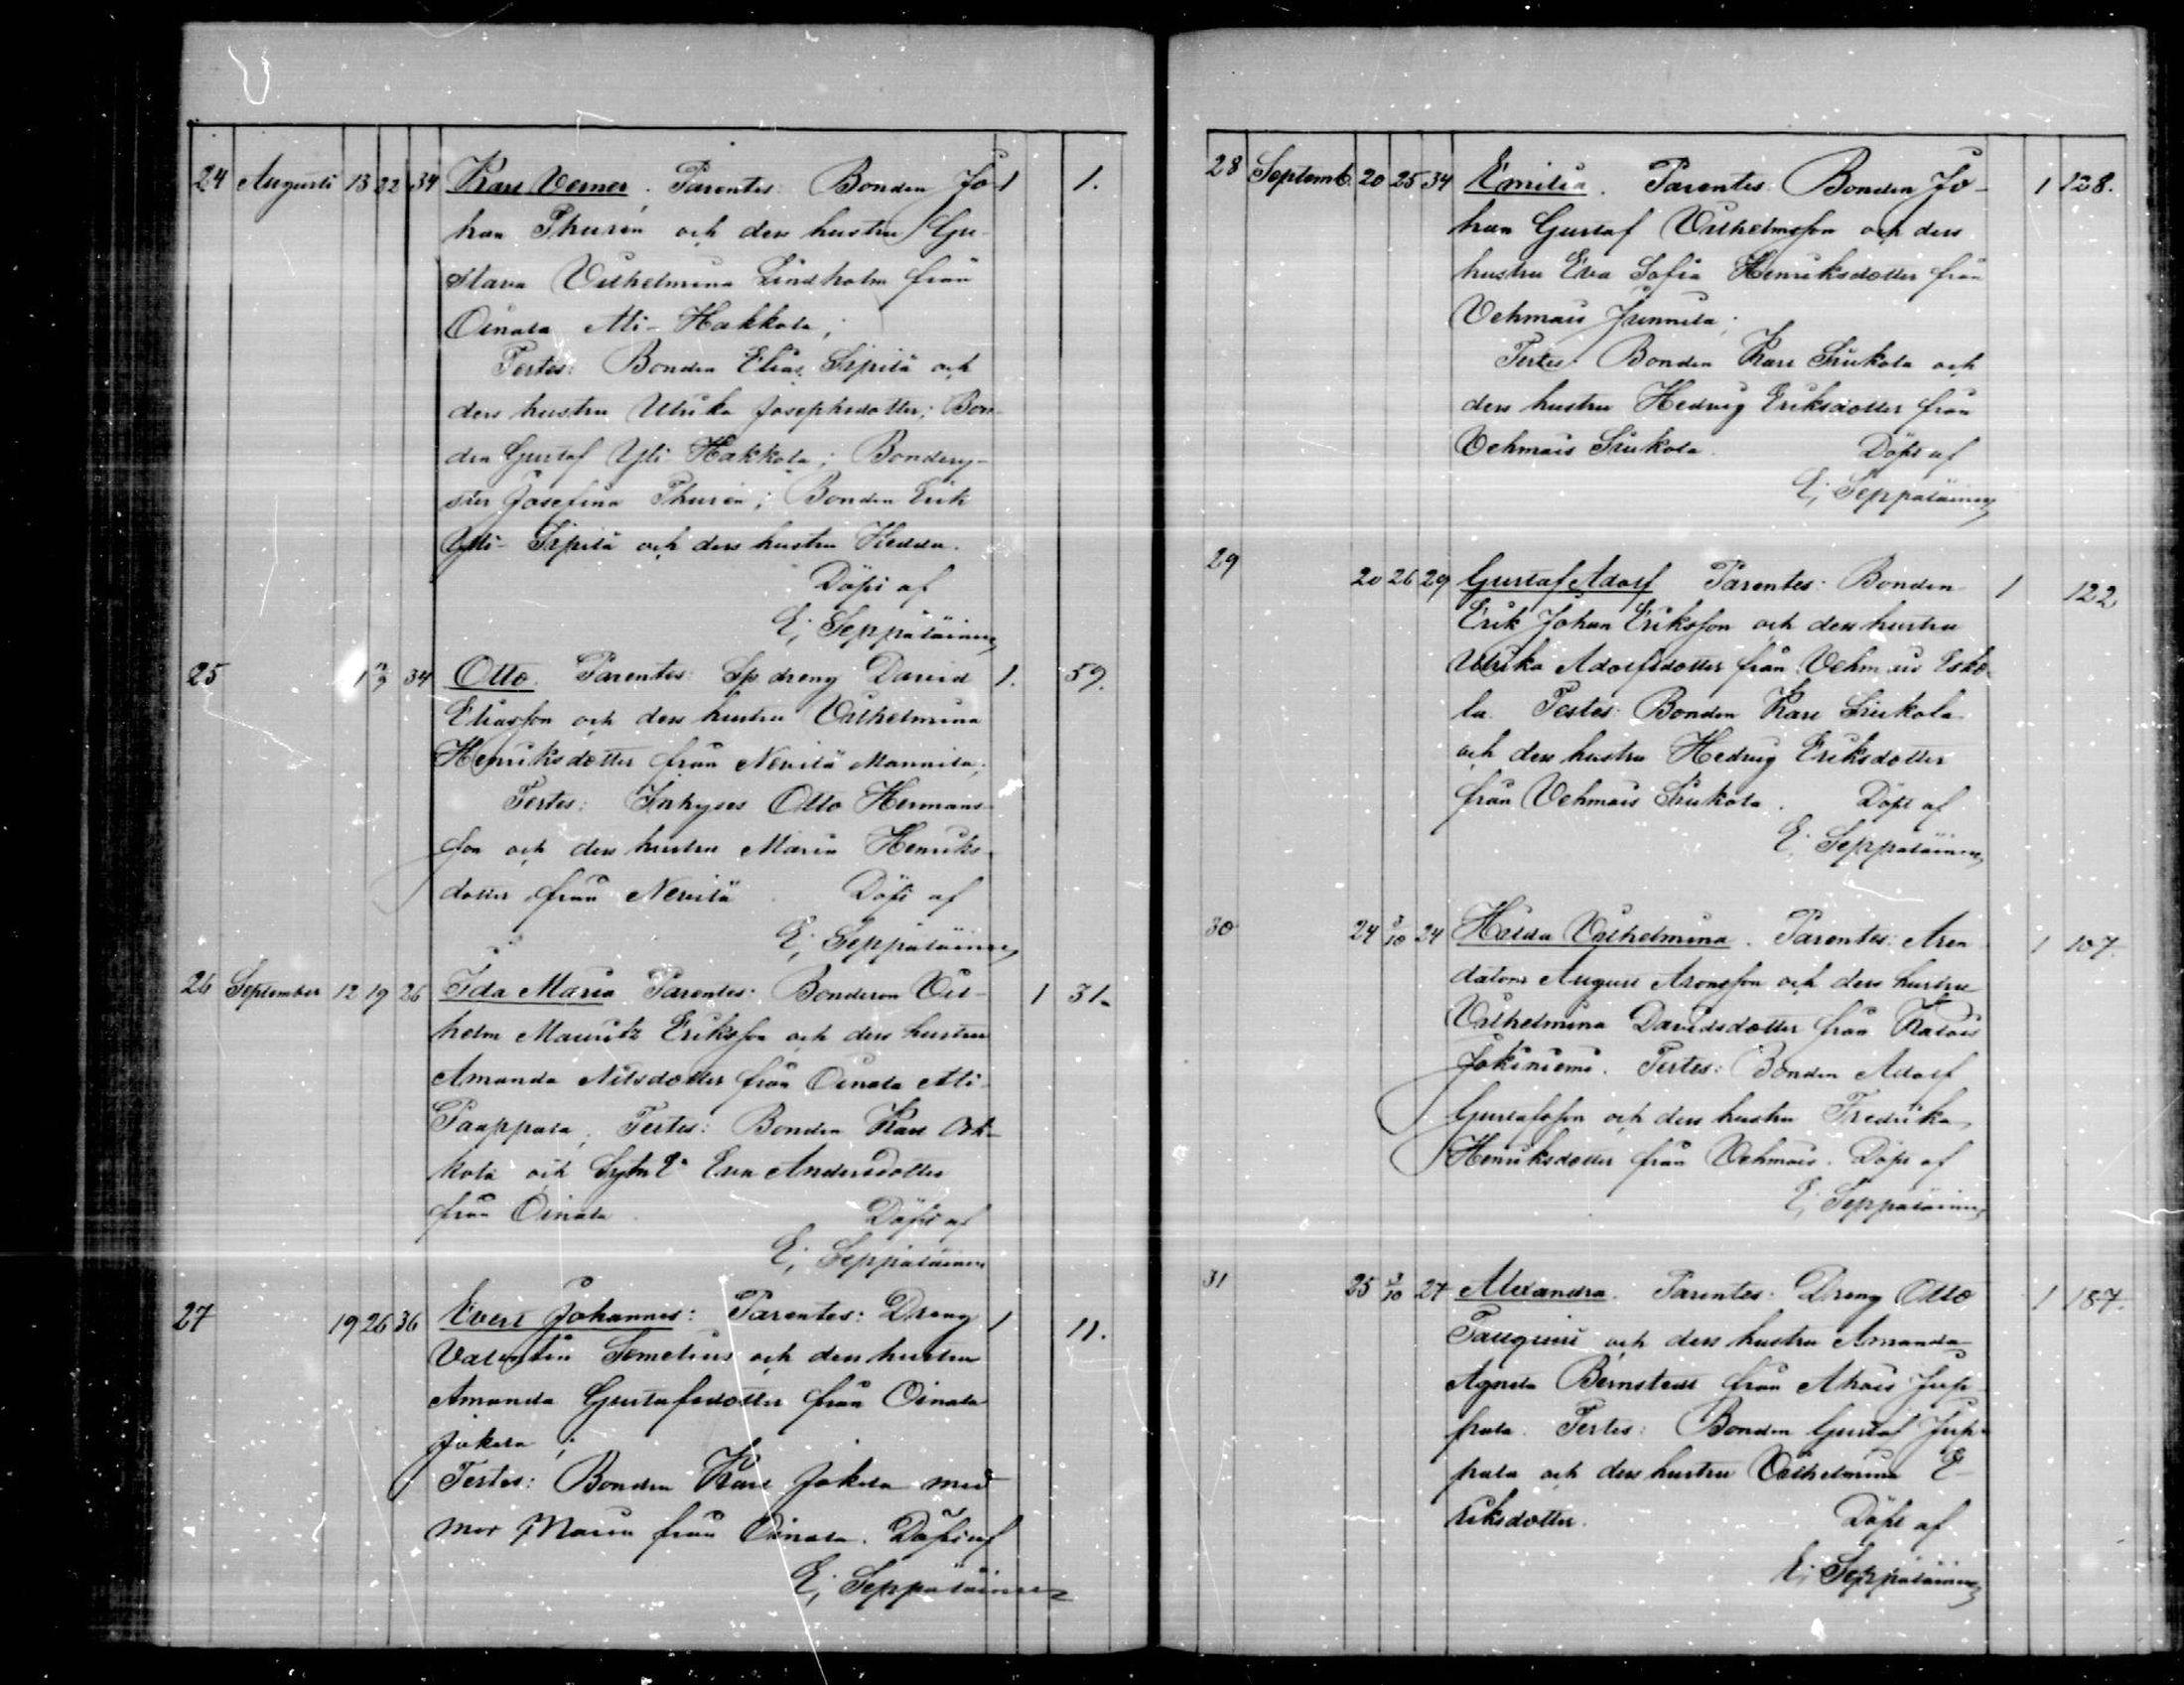 24 Augusti 13 22 34 Karl Verner. Parentes: Bonden Jo- 1 1.
han Thurén och dess hustru Gu-
stava Vilhelmina Lindholm från
Oinala Ali-Hakkola;
Testes: Bonden Elias Sipilä och
dess hustru Ulrika Josephsdotter; Bon-
den Gustaf Yli Hakkola; Bondesy-
ster Josefina Thurén; Bonden Erik
Yli-Sipilä och dess hustru Hedda.
Döpt af
E; Seppäläinen
25 34 Otto. Parentes: Sp. dreng David 1. 59.
Eliasson och dess hustru Vilhelmina
Henriksdotter från Nevilä Mannila;
Testes: Inhyses Otto Hermans-
son och dess hustru Maria Henriks-
dotter från Nevilä. Döpt af
E; Seppäläinen
26 September 12 19 26 Ida Maria Parentes: Bondeson Vil- 1 31.
helm Mauritz Eriksson och dess hustru
Amanda Nilsdotter från Oinala Ali-
Paappala; Testes: Bonden Karl
och Eva Andersdotter
från Oinala. Döpt af
E; Seppäläinen
27 19 26 36 Evert Johannes: Parentes: Dreng 1 11.
Valentin Semelius och dess hustru
Amanda Gustafsdotter från Oinala
Jokela;
Testes: Bonden Karl Jokela med
mor Maria från Oinala. Döpt af
E; Seppäläinen
28 Septemb. 20 25 34 Emilia. Parentes: Bonden Jo- 1 128.
han Gustaf Vilhelmsson och dess
hustru Eva Sofia Henriksdotter från
Vehmais Junnila;
Testes: Bonden Karl Siukola och
dess hustru Hedvig Eriksdotter från
Vehmais Siukola. Döpt af
E; Seppäläinen
29 20 26 29 Gustaf Adolf Parentes: Bonden 1 122
Erik Johan Eriksson och dess hustru
Ulrika Adolfsdotter från Vehmais Esko-
la. Testes: Bonden Karl Siukola
och dess hustru Hedvig Eriksdotter
från Vehmais Siukola. Döpt af
E; Seppäläinen
30 24 3/10 24 Hilda Vilhelmina. Parentes: Aren- 1 107.
datorn August Aronsson och dess hustru
Vilhelmina Davidsdotter från Kalois
Jokiniemi. Testes: Bonden Adolf
Gustafsson och dess hustru Fredrika
Henriksdotter från Vehmais. Döpt af
E; Seppäläinen
31 25 3/10 27 Alexandra. Parentes: Dreng Otto 1 187.
och dess hustru Amanda
Agneta Bernstedt från Ahois Jup-
pala. Testes: Bonden Gustaf Jup-
pala och dess hustru Vilhelmina E-
riksdotter. Döpt af
E; Seppäläinen